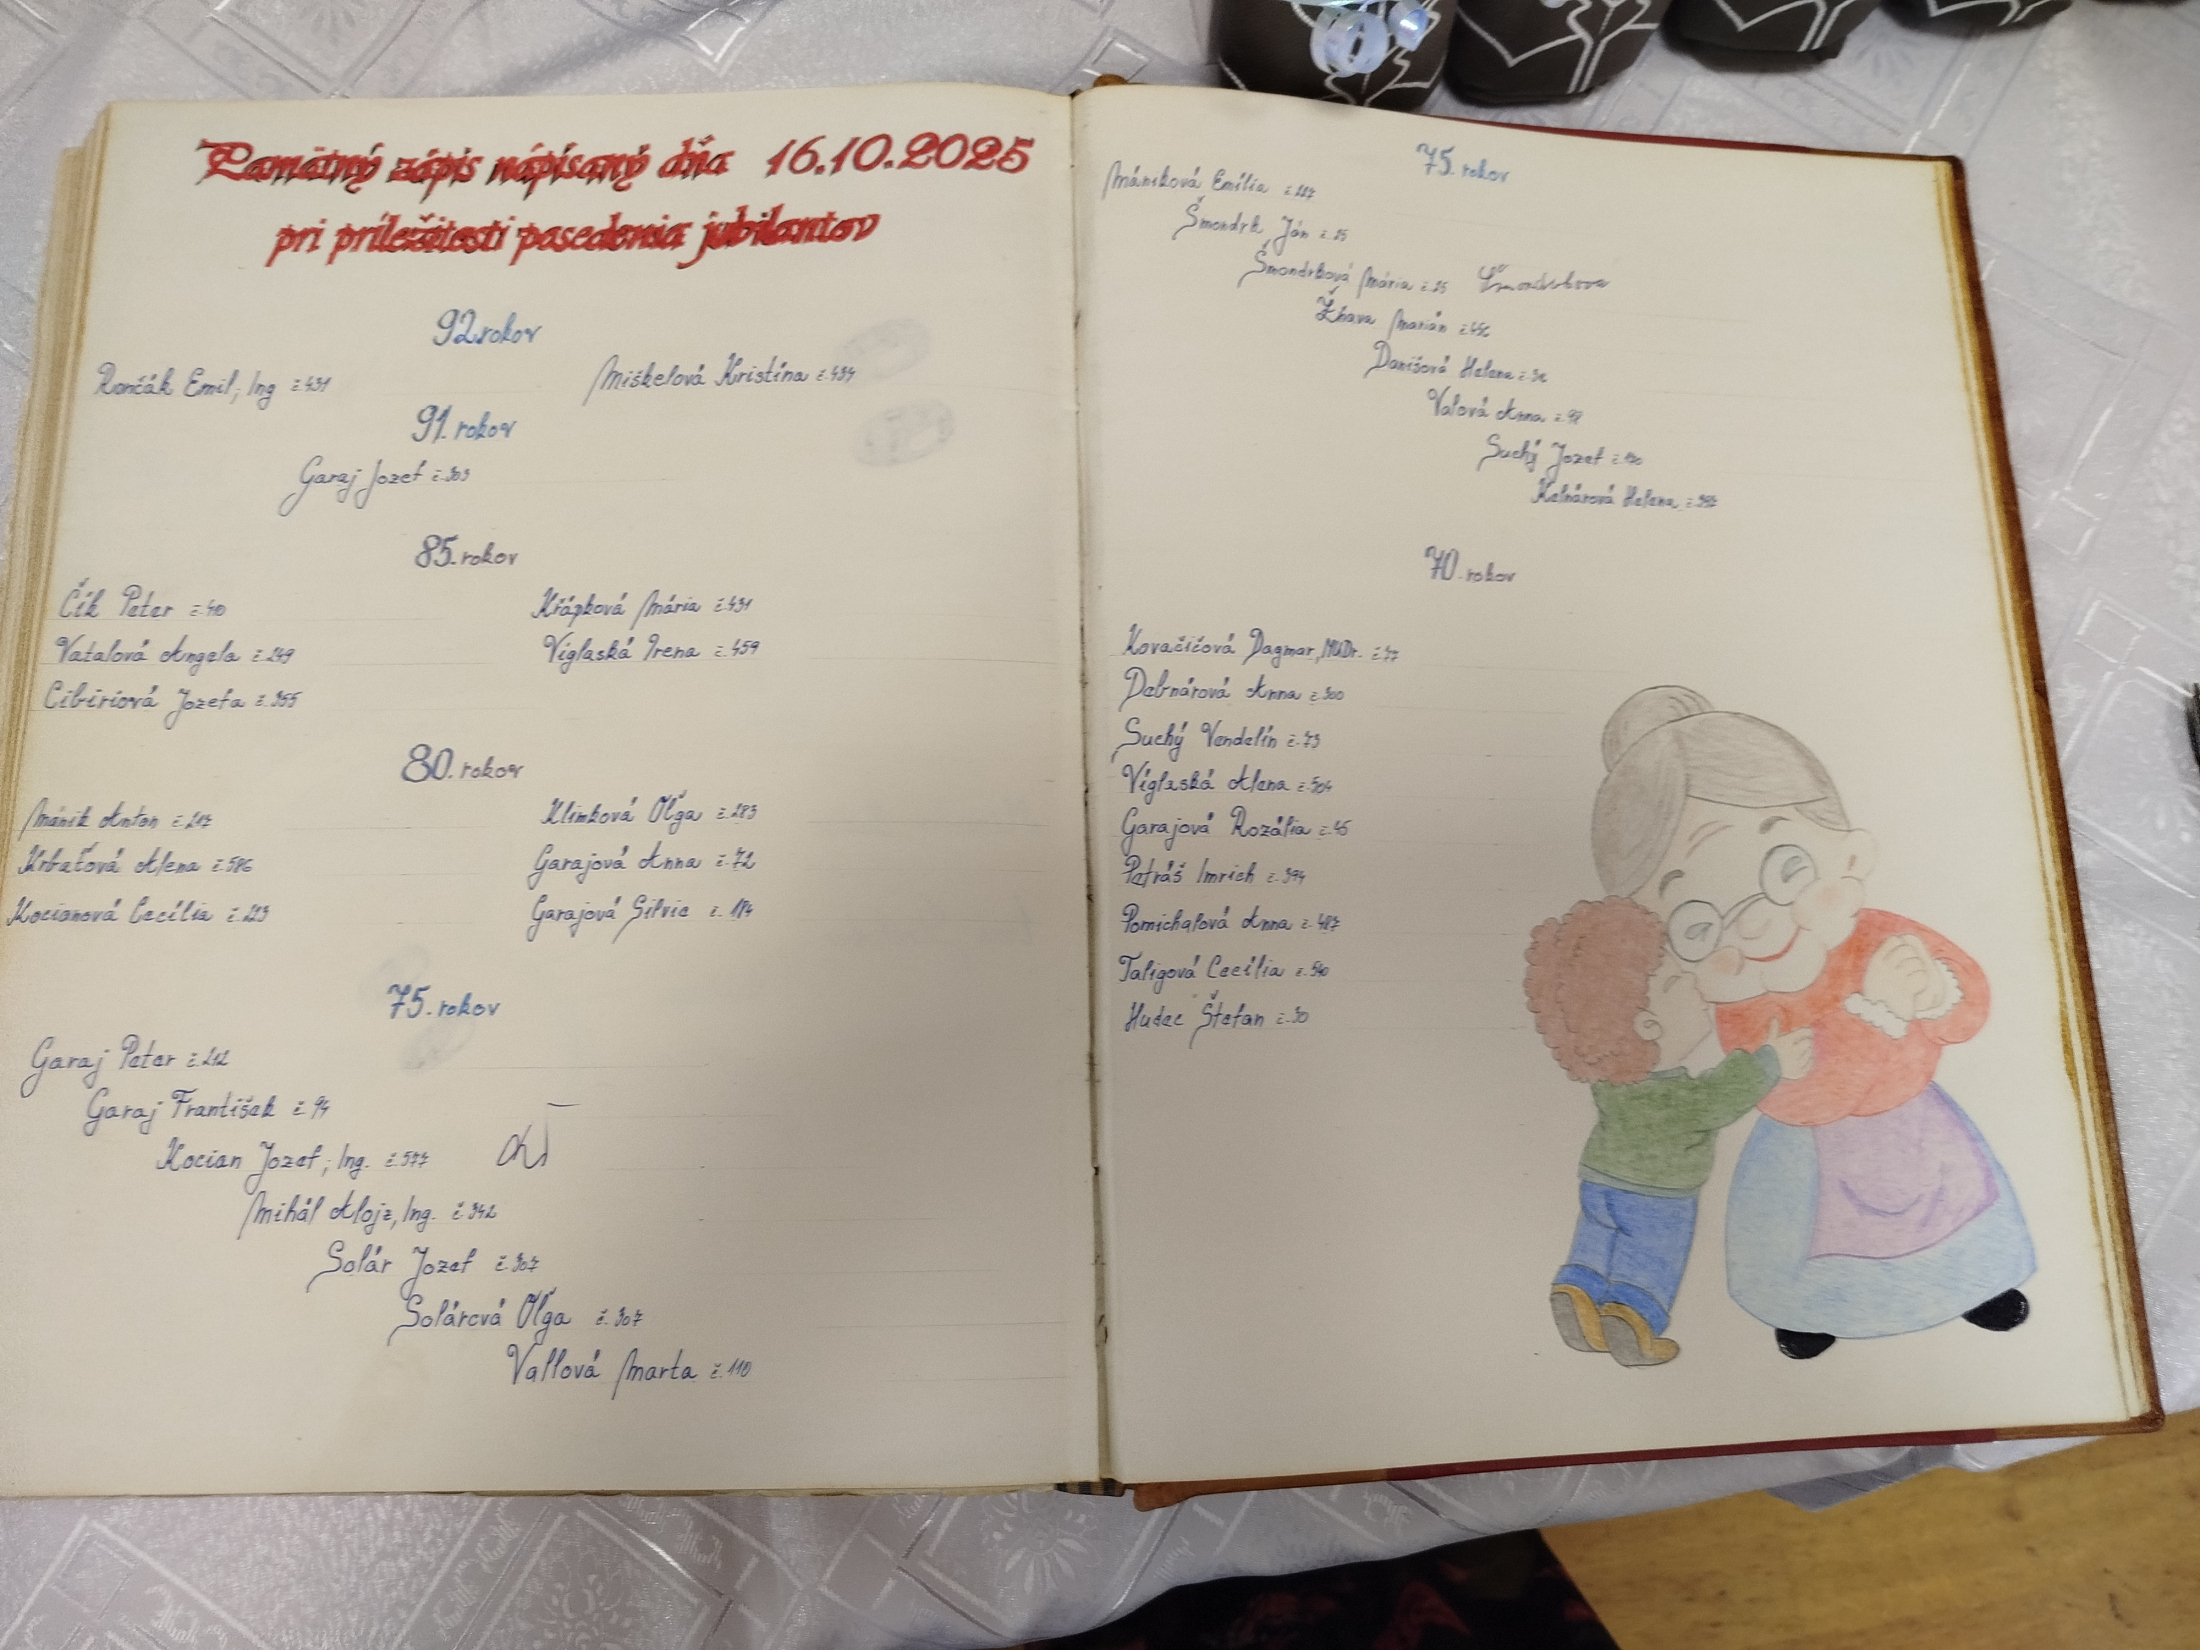 Pamätný zápis nápísaný dňa 16.10.2025
pri príležitosti posedenia jubilantov
92 rokov
Rončák Emil, Ing č.431
Miškelová Kristína č.434
91. rokov
Garaj Jozef č.303
85. rokov
Čík Peter č.40
Krápková Mária č.431
Vatalová Angela č.249
Víglaská Irena č.459
Cibiriová Jozefa č.355
80. rokov
Mánik Anton č.217
Klimková Oľga č.283
Krbaťová Alena č.586
Garajová Anna č.72
Kocianová Cecília č.223
Garajová Silvia č.184
75. rokov
Garaj Peter č.212
Garaj František č.94
Kocian Jozef, Ing. č.577
Mihál Alojz, Ing. č.342
Solár Jozef č.307
Solárová Oľga č.307
Vallová Marta č.110
75. rokov
Mániková Emília č.227
Šmondrk Ján č.25
Šmondrková Mária č.25
Žhava Marián
Danišová Helena
Vaľová Anna č.98
Suchý Jozef
Kelnárová Helena
70. rokov
Kovačičová Dagmar, MUDr. č.77
Debnárová Anna č.300
Suchý Vendelín č.73
Víglaská Alena č.504
Garajová Rozália č.45
Petráš Imrich č.394
Pomichalová Anna č.487
Taligová Cecília č.540
Hudec Štefan č.30